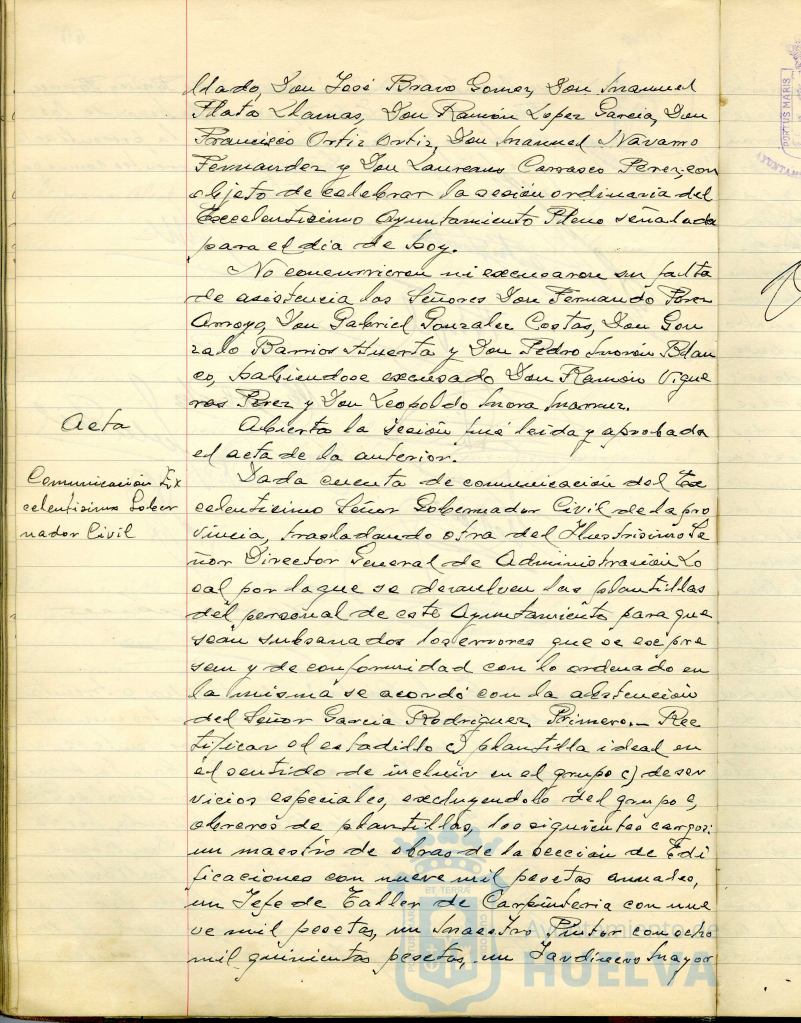 llado, Don José Bravo Gomez, Don Manuel
Plata Llamas, Don Ramón Lopez Garcia, Don
Francisco Ortiz Ortiz, Don Manuel Navarro
Fernandez y Don Laureano Carrasco Perez, con
objeto de celebrar la sesión ordinaria del
Excelentisimo Ayuntamiento Pleno señalada
para el dia de hoy.
No concurrieron ni excusaron su falta
de asistencia los Señores Don Fernando Perez
Arroyo, Don Gabriel Gonzalez Costas, Don Gon
zalo Barrios Huerta y Don Pedro Morón Blan
co, habiendose excusado Don Ramón Vigue
ras Perez y Don Leopoldo Mora
Acta
Abierta la sesión fué leida y aprobada
el acta de la anterior.
Comunicación Ex
celentisimo Gober
nador Civil
Dada cuenta de comunicación del Ex
celentisimo Señor Gobernador Civil de la pro
vincia, trasladando otra del Ilustrisimo Se
ñor Director General de Administración Lo
cal por la que se devuelven las plantillas
del personal de este Ayuntamiento para que
sean subsanados los errores que se expre
sem y de conformidad con lo ordenado en
la misma se acordó con la abstención
del Señor Garcia Rodriguez. Primero.- Rec
tificar el estadillo c) plantilla ideal en
el sentido de incluir en el grupo c) de ser
vicios especiales, excluyendolo del grupo e,
obreros de plantillas, los siguientes cargos:
un maestro de obras de la sección de Edi
ficaciones con nueve mil pesetas anuales,
un Jefe de Taller de Carpinteria con nue
ve mil pesetas, un Maestro Pintor con ocho
mil quinientas pesetas, un Jardinero Mayor
PORTUS MARIS
ET TERRAE
CUSTODIA
Ayuntamiento de
HUELVA
PORTUS MARIS